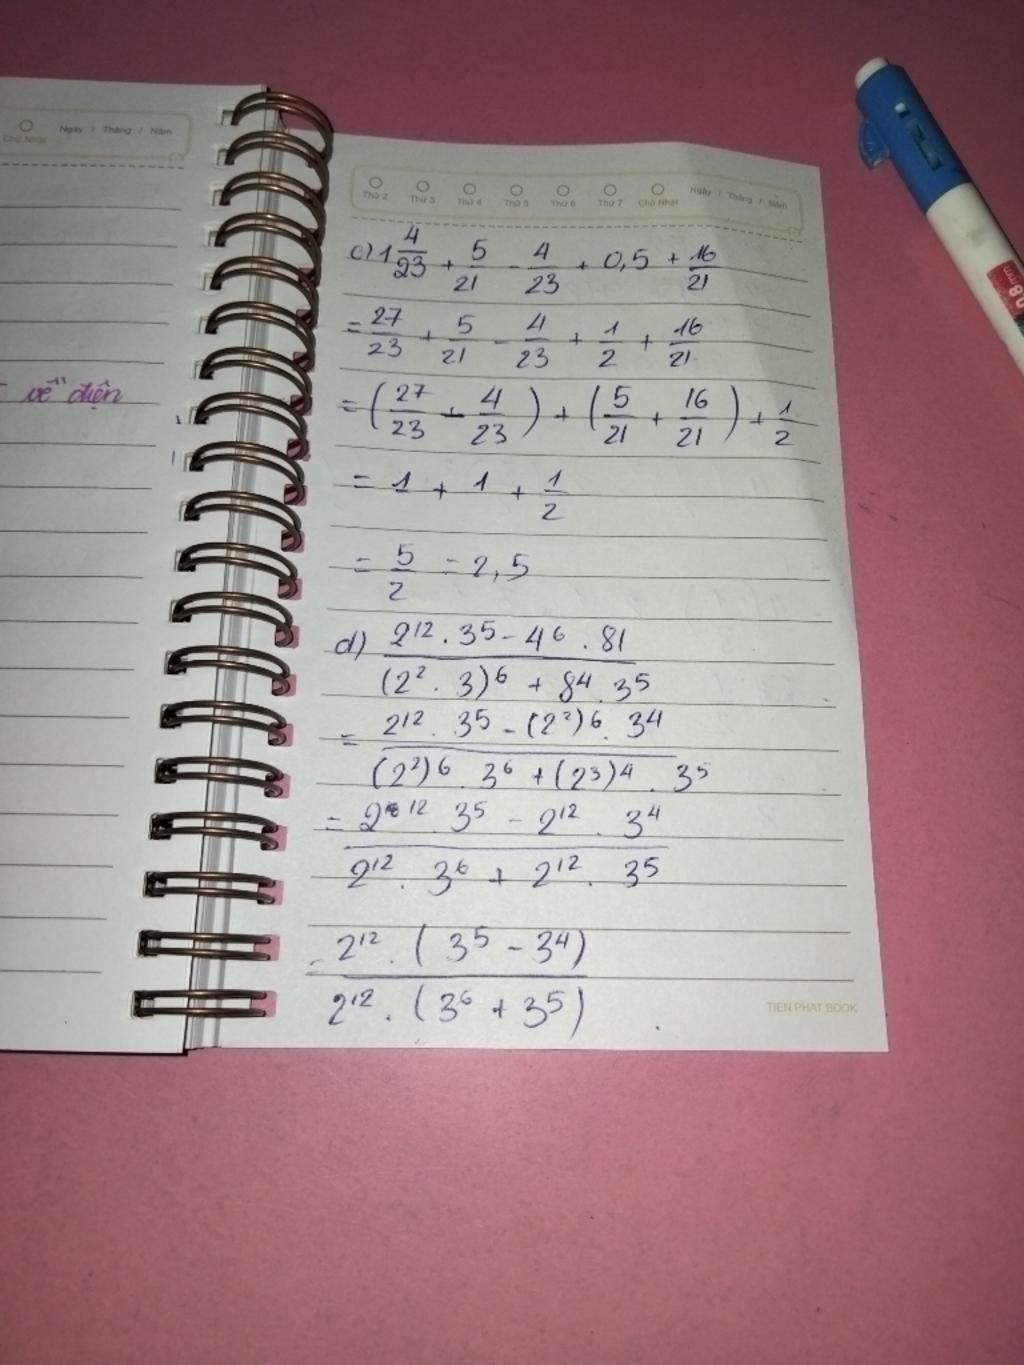 Chủ Nhật Ngày / Tháng / Năm
về điện
Thứ 2 Thứ 3 Thứ 4 Thứ 5 Thứ 6 Thứ 7 Chủ Nhật Ngày / Tháng / Năm
c) 1 4/23 + 5/21 - 4/23 + 0,5 + 16/21
= 27/23 + 5/21 - 4/23 + 1/2 + 16/21
= (27/23 - 4/23) + (5/21 + 16/21) + 1/2
= 1 + 1 + 1/2
= 5/2 = 2,5
d) 2¹² . 3⁵ - 4⁶ . 81
(2² . 3)⁶ + 8⁴ . 3⁵
= 2¹² . 3⁵ - (2²)⁶ . 3⁴
(2²)⁶ . 3⁶ + (2³)⁴ . 3⁵
= 2¹² . 3⁵ - 2¹² . 3⁴
2¹² . 3⁶ + 2¹² . 3⁵
= 2¹² . (3⁵ - 3⁴)
2¹² . (3⁶ + 3⁵)
TIEN PHAT BOOK
0.8mm